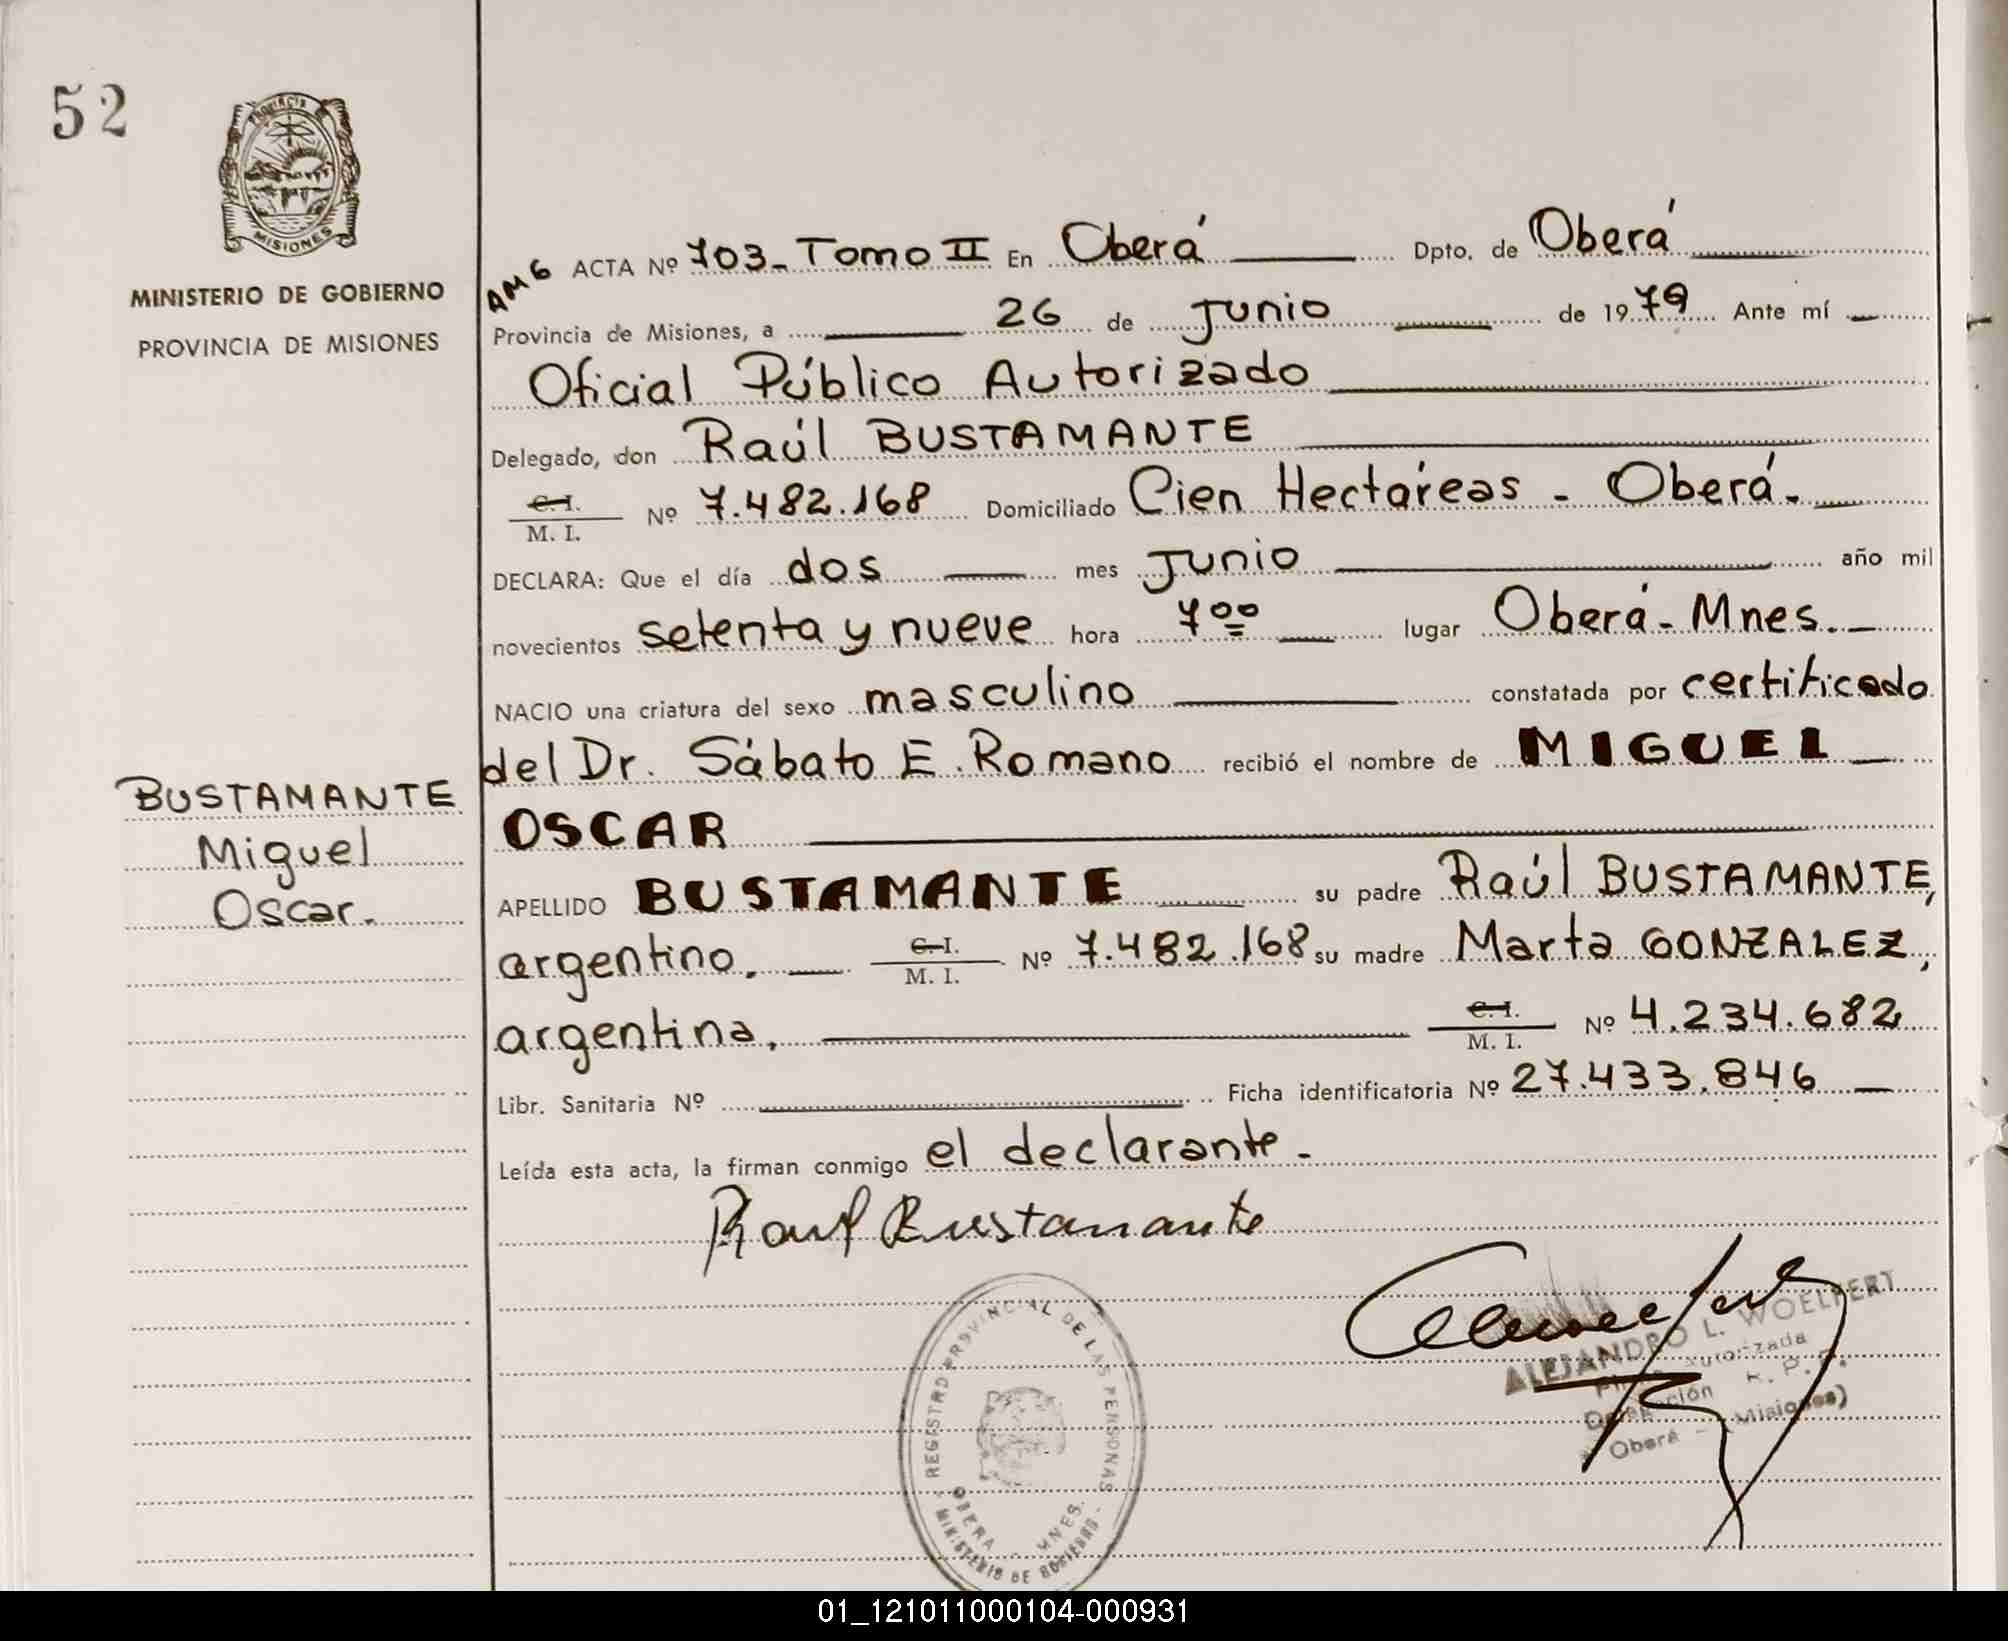 52
Provincia
MISIONES
MINISTERIO DE GOBIERNO
PROVINCIA DE MISIONES
BUSTAMANTE
Miguel
Oscar.
AMG ACTA Nº 703_ Tomo II En Oberá Dpto. de Oberá
Provincia de Misiones, a 26 de Junio de 1979 Ante mí
Oficial Público Autorizado
Delegado, don Raúl BUSTAMANTE
C. I.
M. I. Nº 7.482.168 Domiciliado Cien Hectáreas - Oberá-
DECLARA: Que el día dos mes Junio año mil
novecientos setenta y nueve hora 7⁰⁰ lugar Oberá- Mnes.
NACIO una criatura del sexo masculino constatada por certificado
del Dr. Sábato E. Romano recibió el nombre de MIGUEL
OSCAR
APELLIDO BUSTAMANTE su padre Raúl BUSTAMANTE,
argentino, C. I. M. I. Nº 7.482.168 su madre Marta GONZALEZ,
argentina, C. I. M. I. Nº 4.234.682
Libr. Sanitaria Nº Ficha identificatoria Nº 27.433.846
Leída esta acta, la firman conmigo el declarante.-
Raul Bustamante
ALEJANDRO L. WOELFERT
Firma Autorizada
Delegación R. P. P.
Oberá - Misiones)
REGISTRO PROVINCIAL DE LAS PERSONAS
OBERA - MNES.
MINISTERIO DE GOBIERNO
01_121011000104-000931